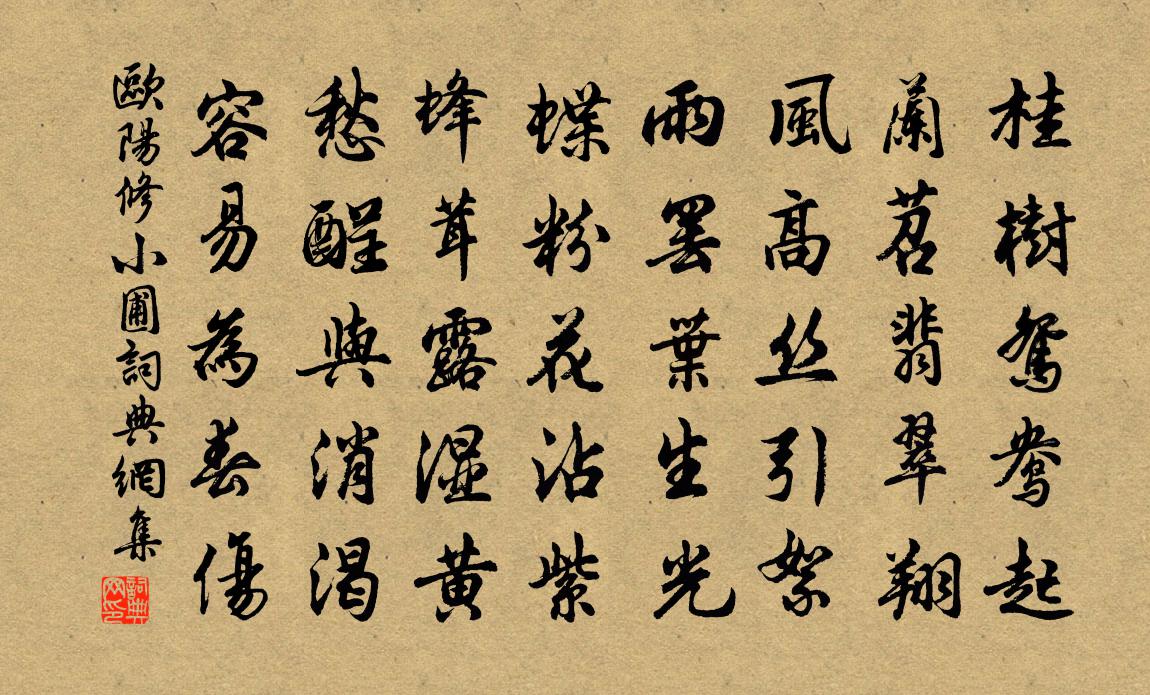 桂樹鴛鴦起
蘭苕翡翠翔
風高丝引絮
雨罷葉生光
蝶粉花沾紫
蜂茸露濕黄
愁醒與消渴
容易為春傷
歐陽修小圃詞典網集
詞典网印